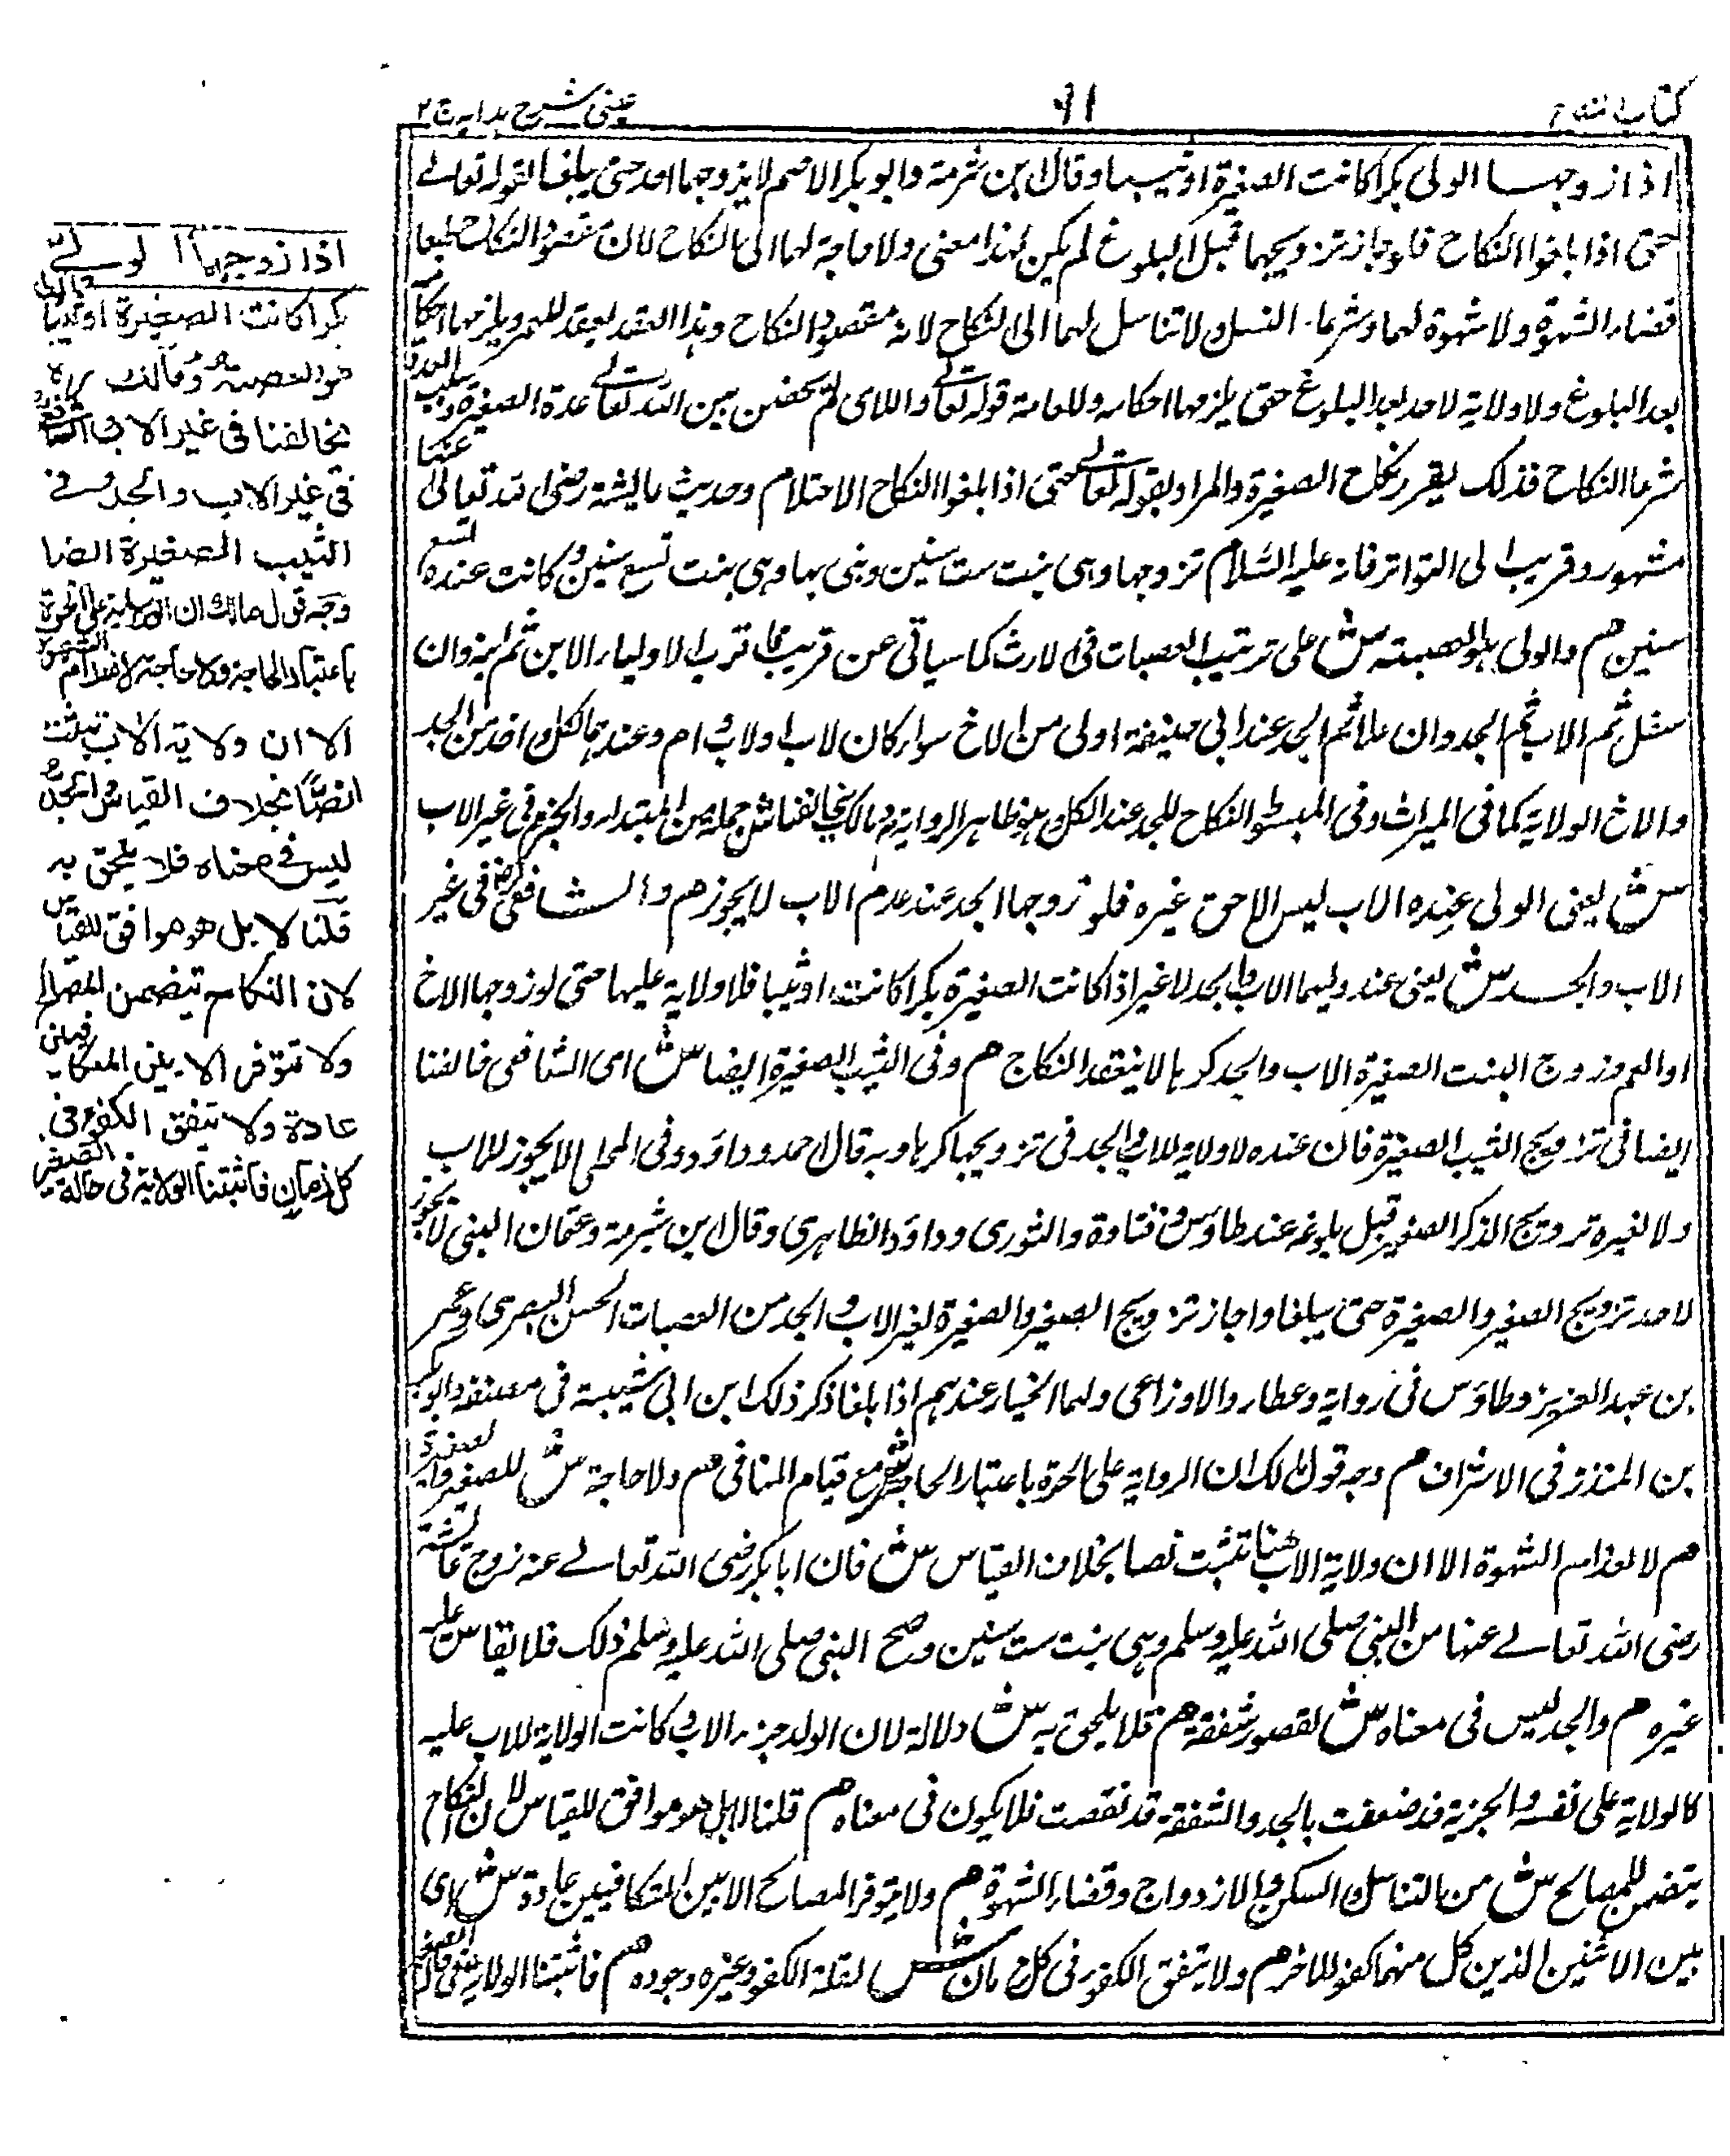 كتاب النكاح
٩١
عينى شرح هدايه ج ٢
اذا زوجهما الولى بكرا كانت الصغيرة او ثيبا وقال ابن شبرمة وابو بكر الاصم لا يزوجهما احد حتى يبلغا لقوله تعالى
حتى اذا بلغوا النكاح فلو جاز تزويجهما قبل البلوغ لم يكن لهذا معنى ولا حاجة لهما الى النكاح لان مقصود النكاح طبعا
قضاء الشهوة ولا شهوة لهما وشرعا النسل ولا تناسل لهما الى النكاح لانه مقصود النكاح وهذا العقد يعقد للعمر ويلزمهما احكامه
بعد البلوغ ولا ولاية لاحد بعد البلوغ حتى يلزمهما احكامه وللعامة قوله تعالى واللاى لم يحضن بين الله تعالى عدة الصغيرة وسبب العدة
شرعا النكاح فذلك يقرر نكاح الصغيرة والمراد بقوله تعالى حتى اذا بلغوا النكاح الاحتلام وحديث عايشة رضى الله تعالى عنها
مشهور وقريب الى التواتر فانه عليه السلام تزوجها وهى بنت ست سنين وبنى بها وهى بنت تسع سنين وكانت عنده تسع
سنين هم والولى هو العصبة ش على ترتيب العصبات فى الارث كما سياتى عن قريب فاقرب الاولياء الابن ثم ابنه وان
سفل ثم الاب ثم الجد وان علا ثم الجد عند ابى حنيفة اولى من الاخ سواء كان لاب او لاب وام وعندهما لكل احد من الجد
والاخ الولاية كما فى الميراث وفى المبسوط النكاح للجد عند الكل هو ظاهر الرواية هم ومالك يخالفنا ش جملة من المبتدا والخبر هم فى غير الاب
ش يعنى الولى عنده الاب ليس الا حق غيره فلو زوجها الجد عند عدم الاب لا يجوز هم والشافعى فى غير
الاب والجد ش يعنى عنده وليهما الاب والجد لا غير اذا كانت الصغيرة بكرا كانت او ثيبا فلا ولاية عليها حتى لو زوجها الاخ
او العم وزوج البنت الصغيرة الاب والجد كرها لا ينعقد النكاح هم وفى الثيب الصغيرة ايضا ش اى الشافعى خالفنا
ايضا فى تزويج الثيب الصغيرة فان عنده لا ولاية للاب والجد فى تزويجها كرها وبه قال احمد وداؤد وفى المحلى لا يجوز للاب
ولا لغيره تزويج الذكر الصغير قبل بلوغه عند طاؤس وقتادة والثورى وداؤد الظاهرى وقال ابن شبرمة وعثمان البتى لا يجوز
لاحد تزويج الصغير والصغيرة حتى يبلغا واجاز تزويج الصغير والصغيرة لغير الاب والجد من العصبات الحسن البصرى وعمر
بن عبد العزيز وطاؤس فى رواية وعطاء والاوزاعى ولهما الخيار عندهم اذا بلغا ذكر ذلك ابن ابى شيبة فى مصنفه وابو بكر
بن المنذر فى الاشراف هم وجه قول مالك ان الولاية على الحرة باعتبار الحاجة ش مع قيام المنافى هم ولا حاجة ش للصغير والصغيرة
هم لانعدام الشهوة الا ان ولاية الاب هنا تثبت نصا بخلاف القياس ش فان ابا بكر رضى الله تعالى عنه زوج عائشة
رضى الله تعالى عنها من النبى صلى الله عليه وسلم وهى بنت ست سنين وصح النبى صلى الله عليه وسلم ذلك فلا يقاس عليه
غيره هم والجد ليس فى معناه ش لقصور شفقته هم فلا يلحق به ش دلالة لان الولد جزء الاب وكانت الولاية للاب عليه
كالولاية على نفسه والجزية قد ضعفت بالجد والشفقة قد نقصت فلا يكون فى معناه هم قلنا لا بل هو موافق للقياس لان النكاح
يتضمن المصالح ش من التناسل والسكن والازدواج وقضاء الشهوة هم ولا يتوفر المصالح الا بين المتكافيين عادة ش اى
بين الاثنين الذين كل منهما كفو للاخر هم ولا يتفق الكفو فى كل زمان ش لقلة الكفو وعزة وجوده هم فاثبتنا الولاية فى حالة الصغر
اذا زوجهما الولى
بكرا كانت الصغيرة او ثيبا
هو العصبة ومالك
يخالفنا فى غير الاب والشافعى
فى غير الاب والجد وفى
الثيب الصغيرة ايضا
وجه قول مالك ان الولاية على الحرة
باعتبار الحاجة ولا حاجة لانعدام الشهوة
الا ان ولاية الاب تثبت
نصا بخلاف القياس والجد
ليس فى معناه فلا يلحق به
قلنا لا بل هو موافق للقياس
لان النكاح يتضمن المصالح
ولا تتوفر الا بين المتكافيين
عادة ولا يتفق الكفو فى
كل زمان فاثبتنا الولاية فى حالة الصغر